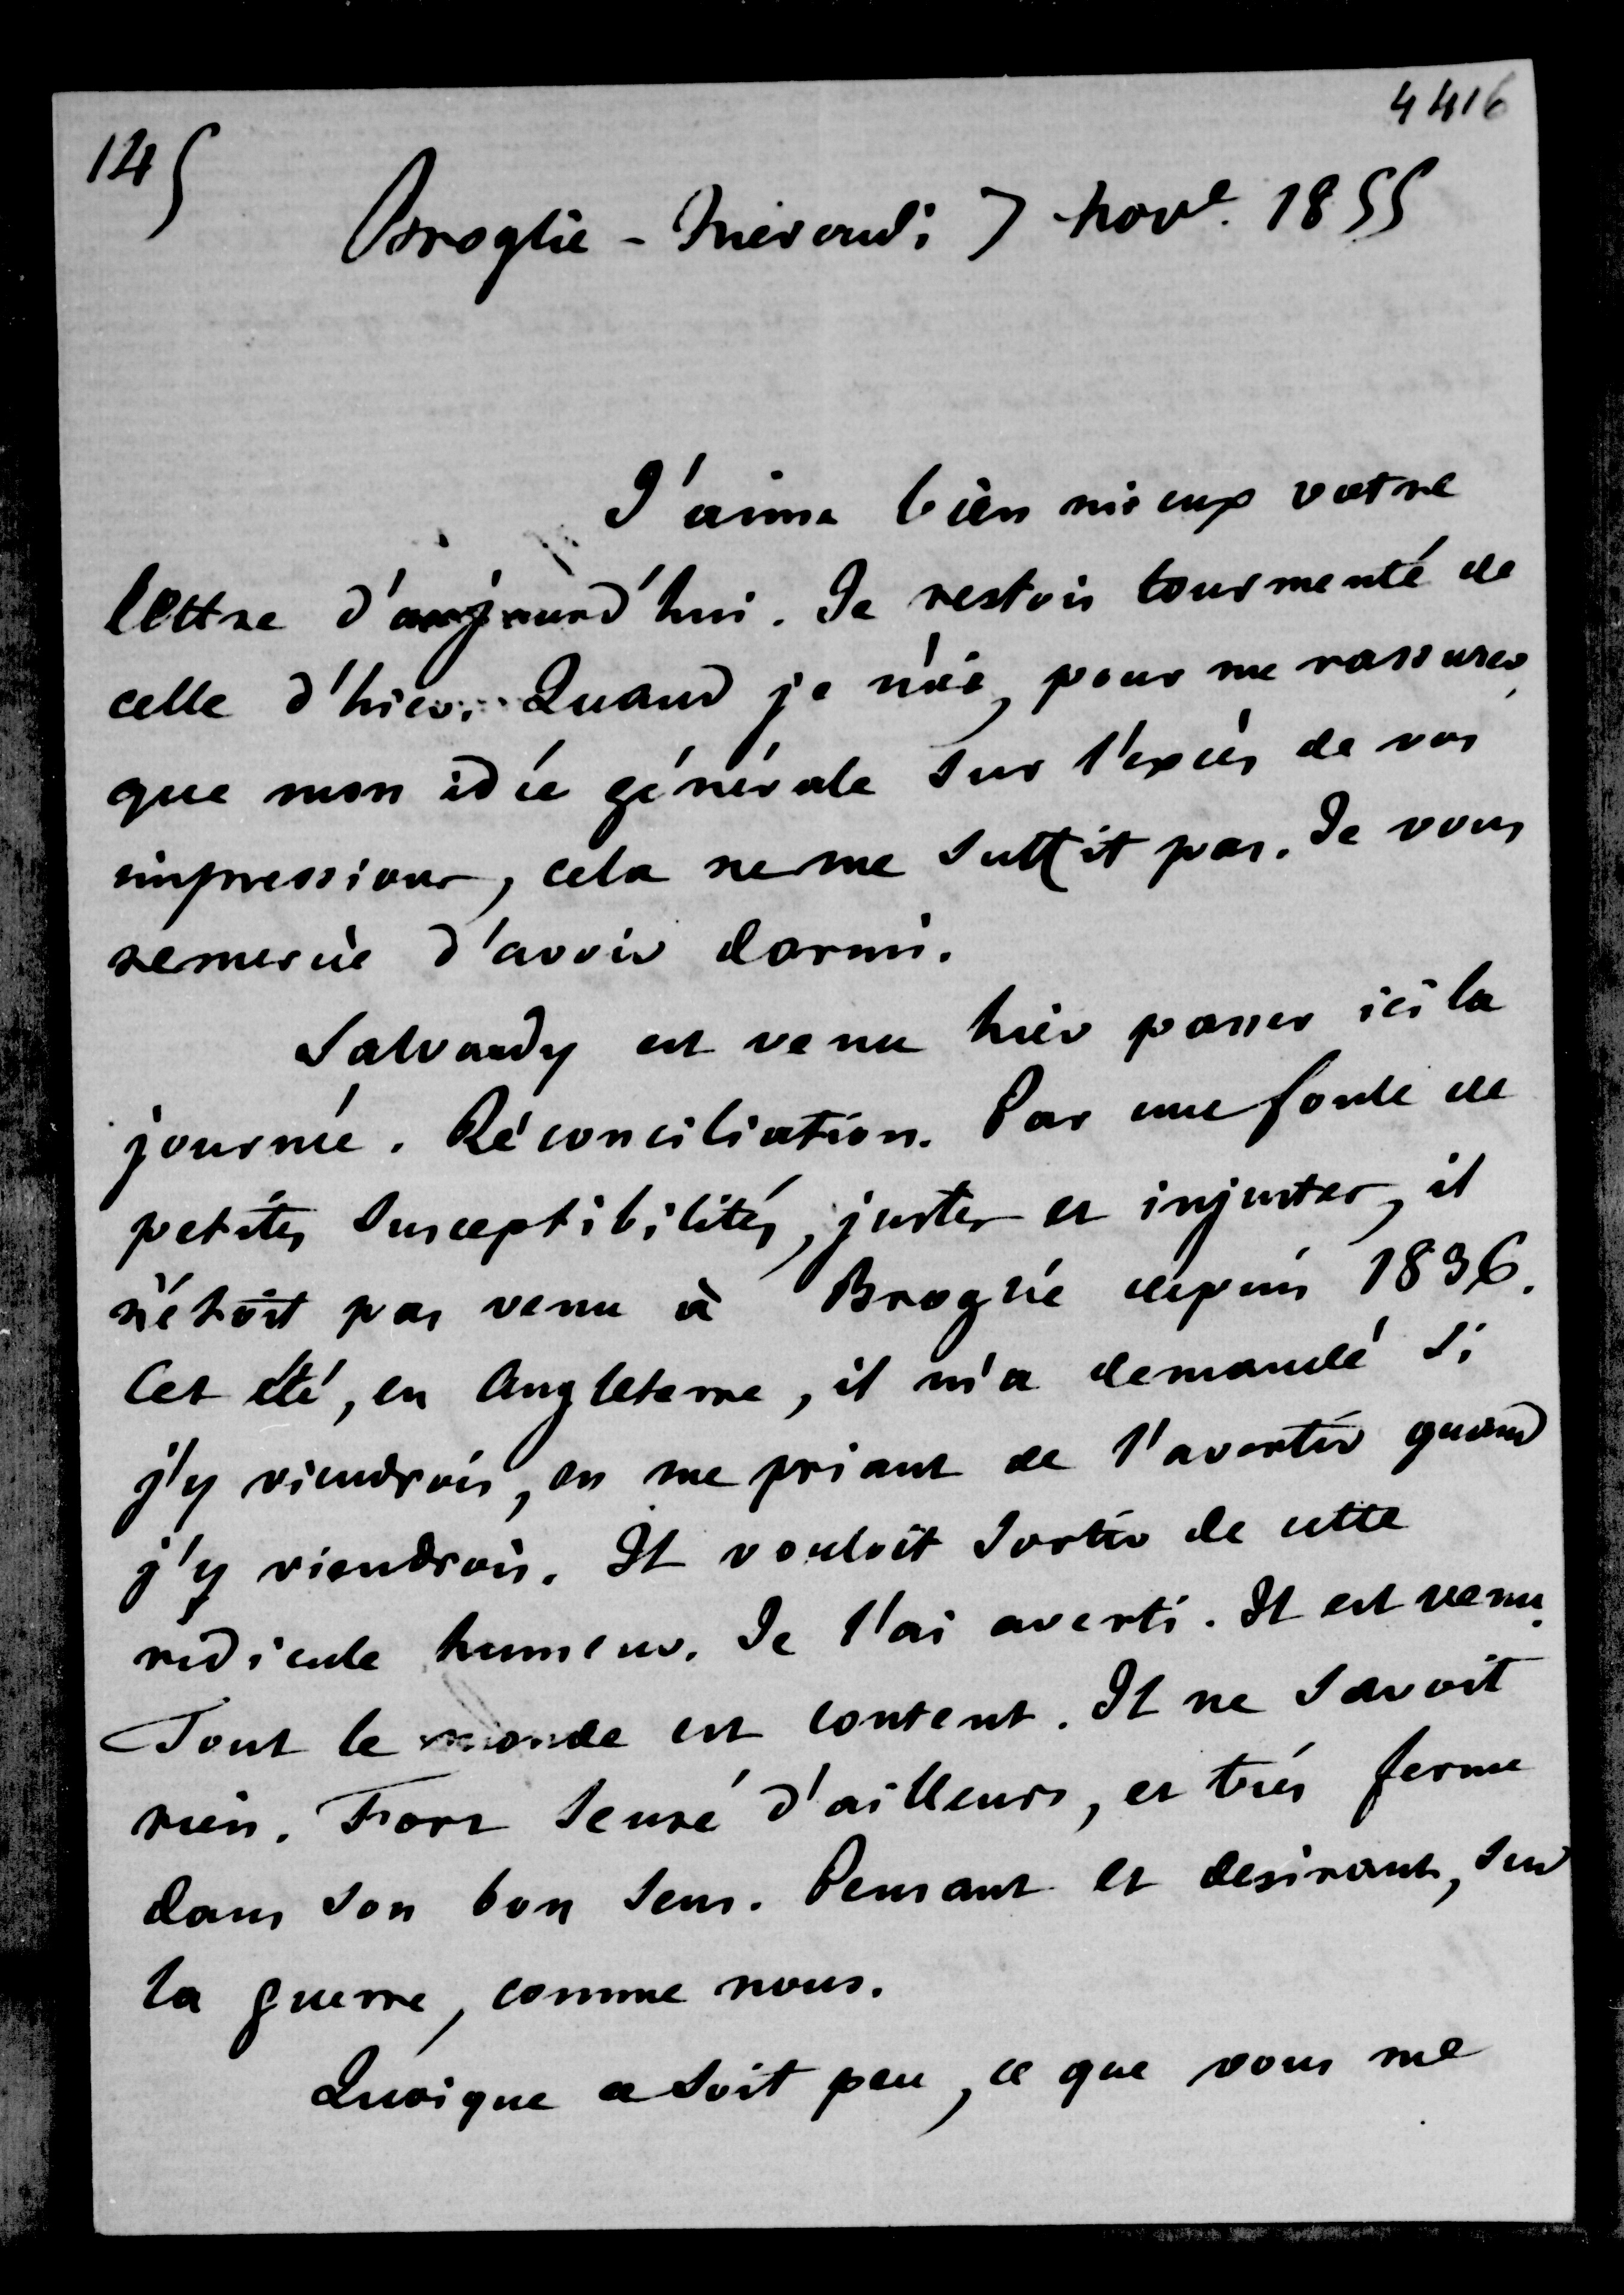 4416
145
Broglie - Mercredi 7 Nov.e 1855
J'aime bien mieux votre
lettre d'aujourd'hui. Je restois tourmenté de
celle d'hier. Quand je n'ai, pour me rassurer,
que mon idée générale sur l'excès de vos
impressions, cela ne me suffit pas. Je vous
remercie d'avoir dormi.
Salvandy est venu hier passer ici la
journée. Réconciliation. Par une foule de
petites susceptibilités, justes et injustes, il
n'étoit pas venu à Broglie depuis 1836.
Cet été, en Angleterre, il m'a demandé si
j'y viendrois, en me priant de l'avertir quand
j'y viendrois. Il vouloit sortir de cette
ridicule humeur. Je l'ai averti. Il est venu.
Tout le monde est content. Il ne savoit
rien. Fort sensé d'ailleurs, et très ferme
dans son bon sens. Pensant et desirant, sur
la guerre, comme nous.
Quoique ce soit peu, ce que vous me